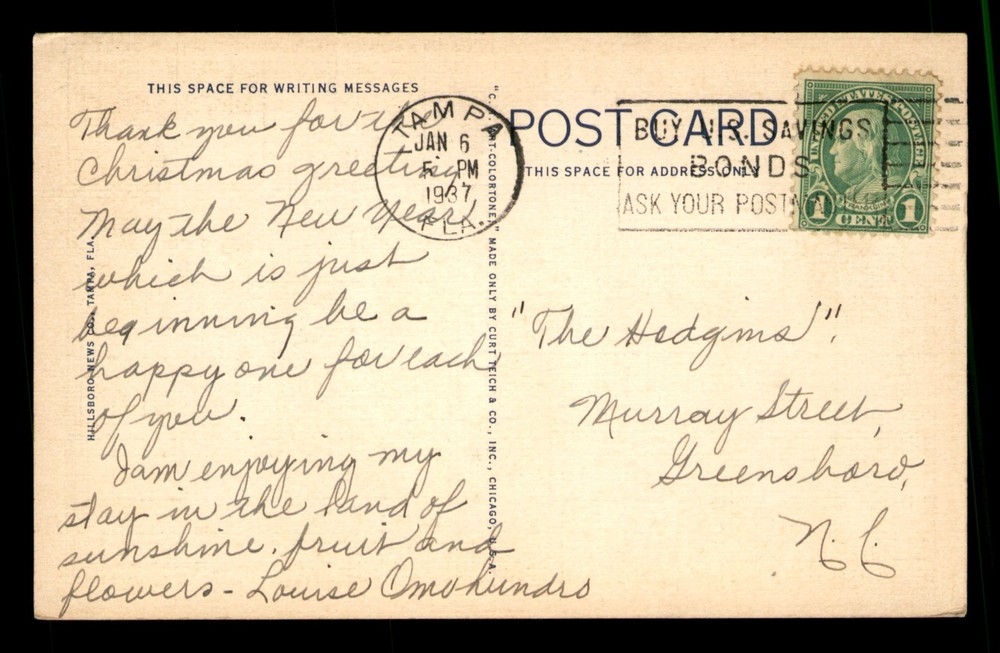 THIS SPACE FOR WRITING MESSAGES
Thank you for the
Christmas greeting.
May the New Year,
which is just
beginning be a
happy one for each
of you.
I am enjoying my
stay in the land of
sunshine, fruit and
flowers - Louise Omohundro
HILLSBORO NEWS CO., TAMPA, FLA.
"C. T. ART-COLORTONE" MADE ONLY BY CURT TEICH & CO., INC., CHICAGO, U.S.A.
TAMPA
JAN 6
5 PM
1937
FLA.
POST CARD
THIS SPACE FOR ADDRESS ONLY
BUY U.S. SAVINGS
BONDS
ASK YOUR
UNITED STATES POSTAGE
1 CENT 1
"The Hodgins'".
Murray Street,
Greensboro,
N. C.